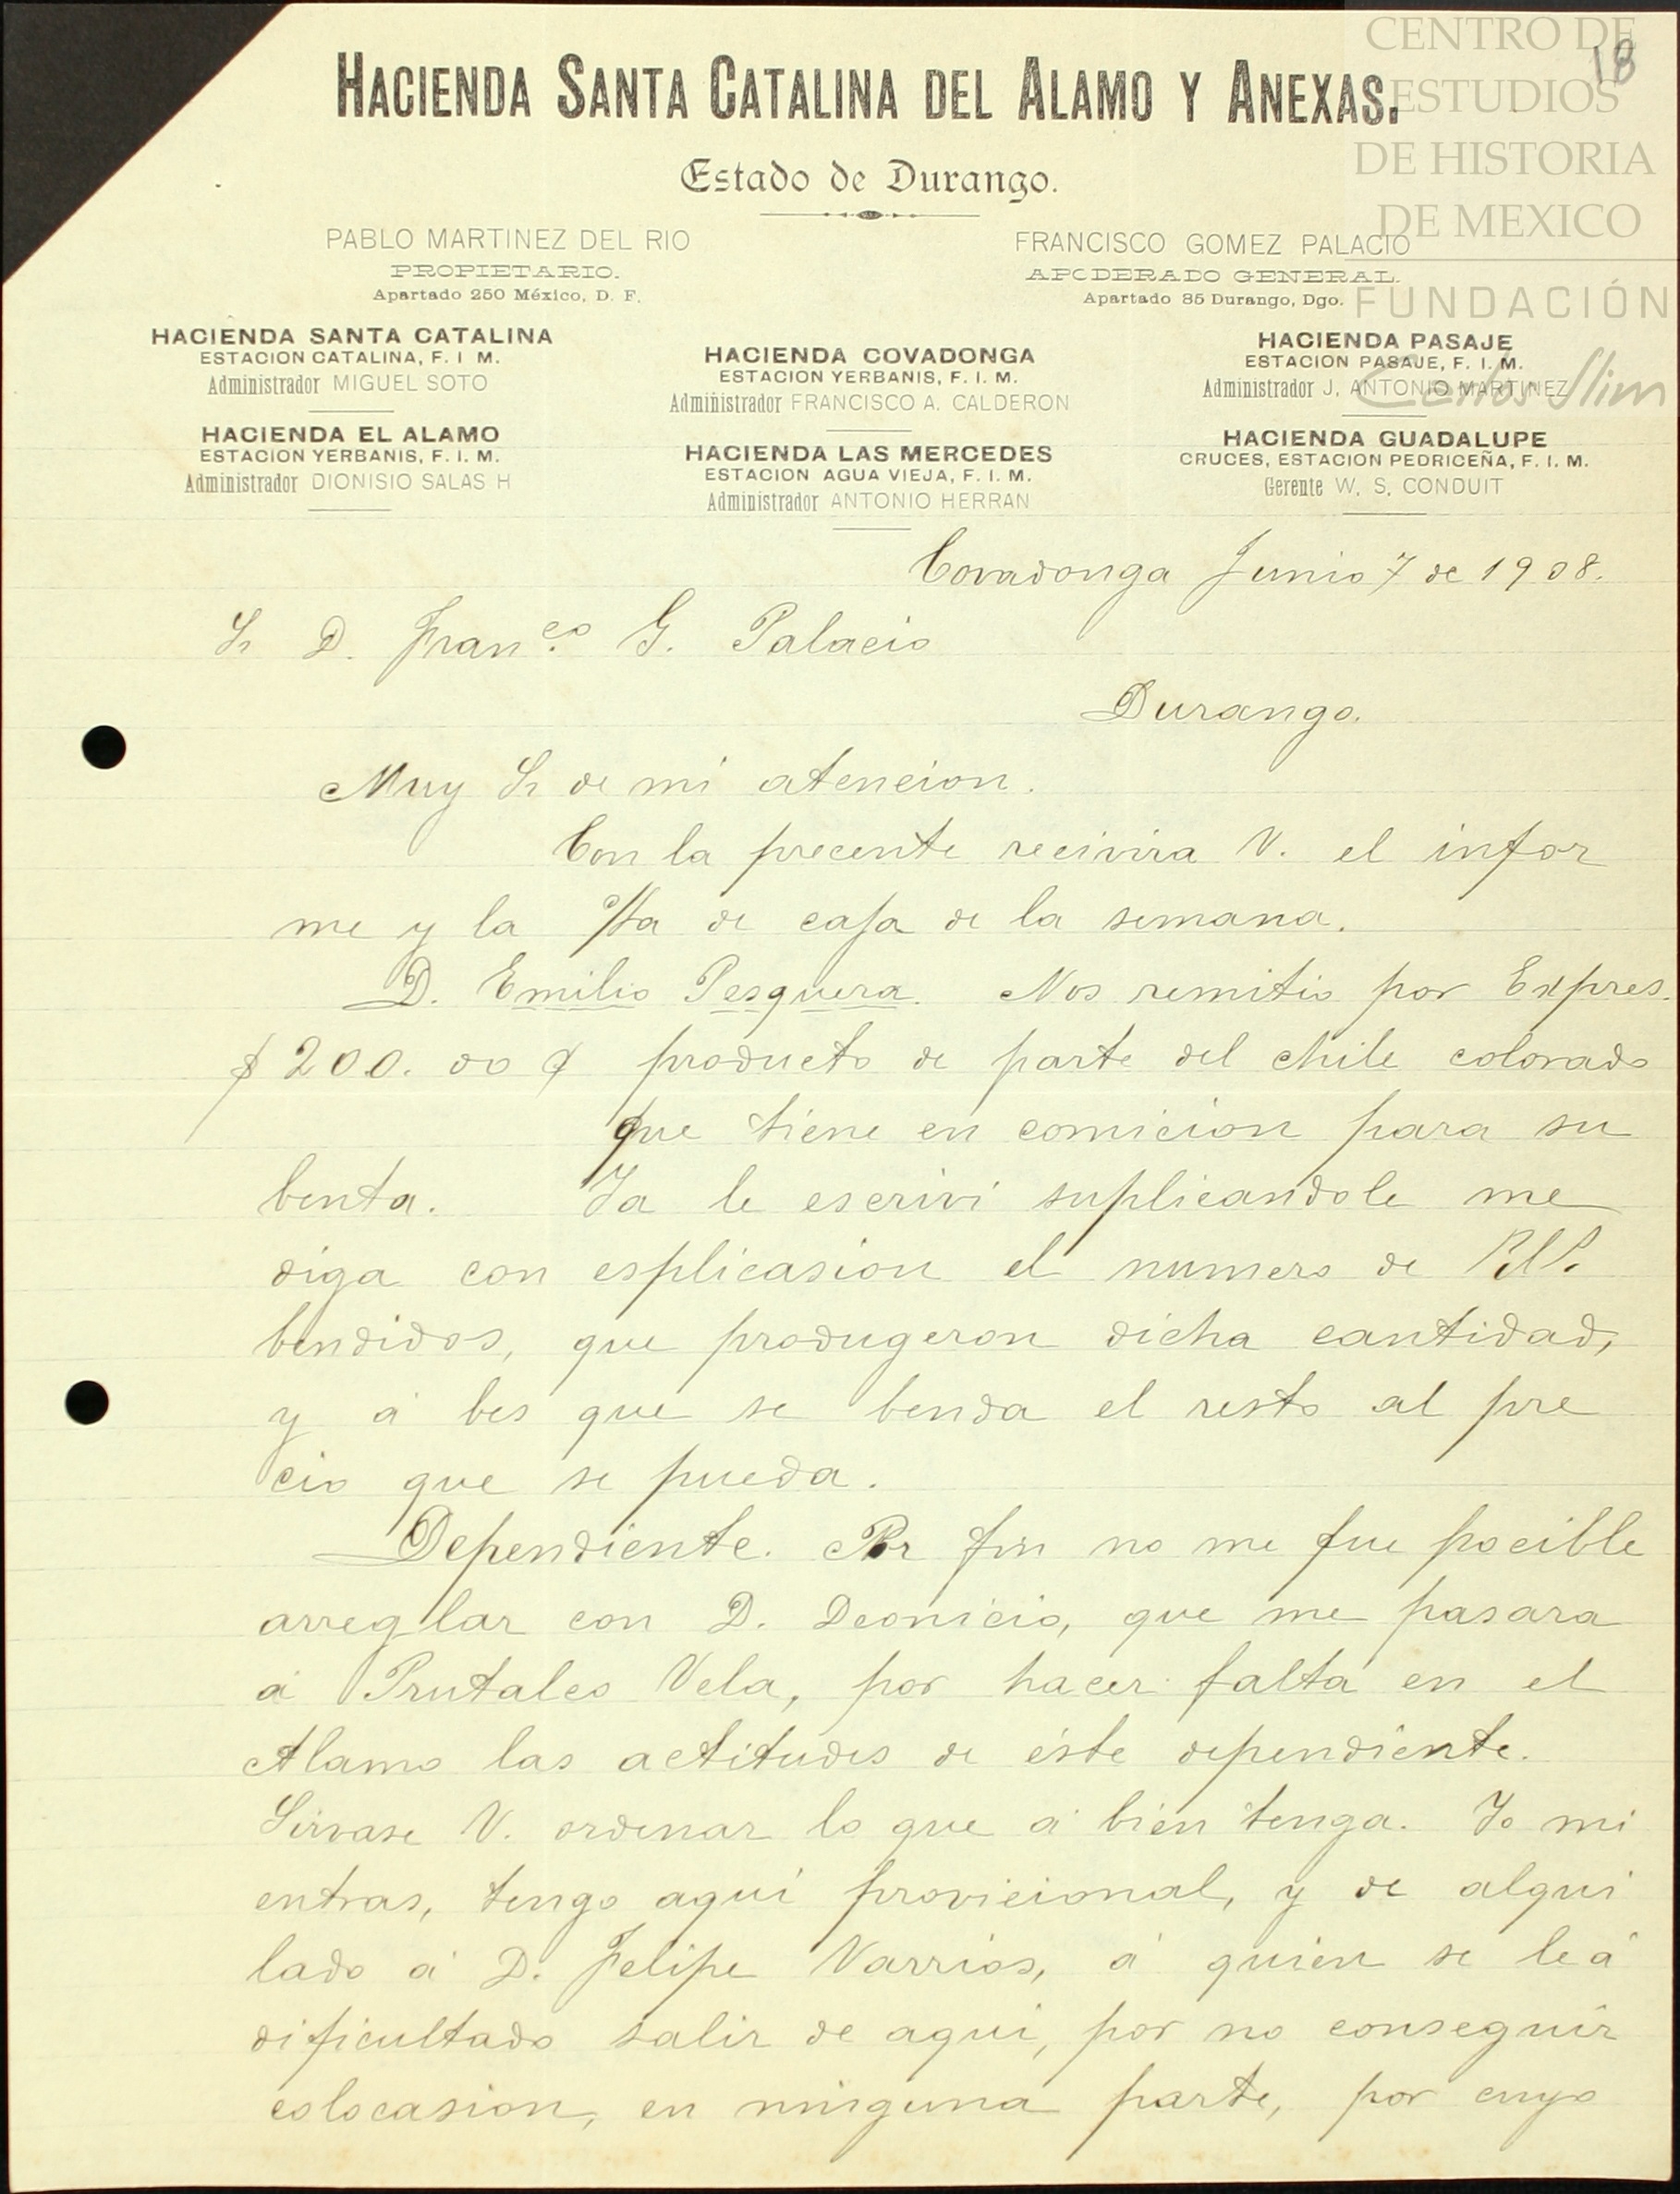 CENTRO DE
ESTUDIOS
DE HISTORIA
DE MEXICO
FUNDACIÓN
Carlos Slim
18
HACIENDA SANTA CATALINA DEL ALAMO Y ANEXAS.
Estado de Durango.
PABLO MARTINEZ DEL RIO
PROPIETARIO.
Apartado 250 México, D. F.
FRANCISCO GOMEZ PALACIO
APODERADO GENERAL.
Apartado 85 Durango, Dgo.
HACIENDA SANTA CATALINA
ESTACION CATALINA, F. I M.
Administrador MIGUEL SOTO
HACIENDA EL ALAMO
ESTACION YERBANIS, F. I. M.
Administrador DIONISIO SALAS H
HACIENDA COVADONGA
ESTACION YERBANIS, F. I. M.
Administrador FRANCISCO A. CALDERON
HACIENDA LAS MERCEDES
ESTACION AGUA VIEJA, F. I. M.
Administrador ANTONIO HERRAN
HACIENDA PASAJE
ESTACION PASAJE, F. I. M.
Administrador J. ANTONIO MARTINEZ
HACIENDA GUADALUPE
CRUCES, ESTACION PEDRICEÑA, F. I. M.
Gerente W. S. CONDUIT
Covadonga Junio 7 de 1908.
Sr D. Franco. G. Palacio
Durango.
Muy Sr de mi atencion.
Con la precente recivira V. el infor
me y la c/ta de caja de la semana.
D. Emilio Pesquera. Nos remitio por Expres.
$200.00 ¢ producto de parte del chile colorado
que tiene en comicion para su
benta. Ya le escrivi suplicandole me
diga con esplicasion el numero de
bendidos, que produgeron dicha cantidad,
y á bes que se benda el resto al pre
cio que se pueda.
Dependiente. Por fin no me fue pocible
arreglar con D. Deonicio, que me pasara
á Vela, por hacer falta en el
Alamo las actitudes de éste dependiente.
Sirvase V. ordenar lo que á bien tenga. Yo mi
entras, tengo aqui provicional, y de alqui
lado á D. Felipe Varrios, á quien se le á
dificultado salir de aqui, por no conseguir
colocasion, en ninguna parte, por cuyo